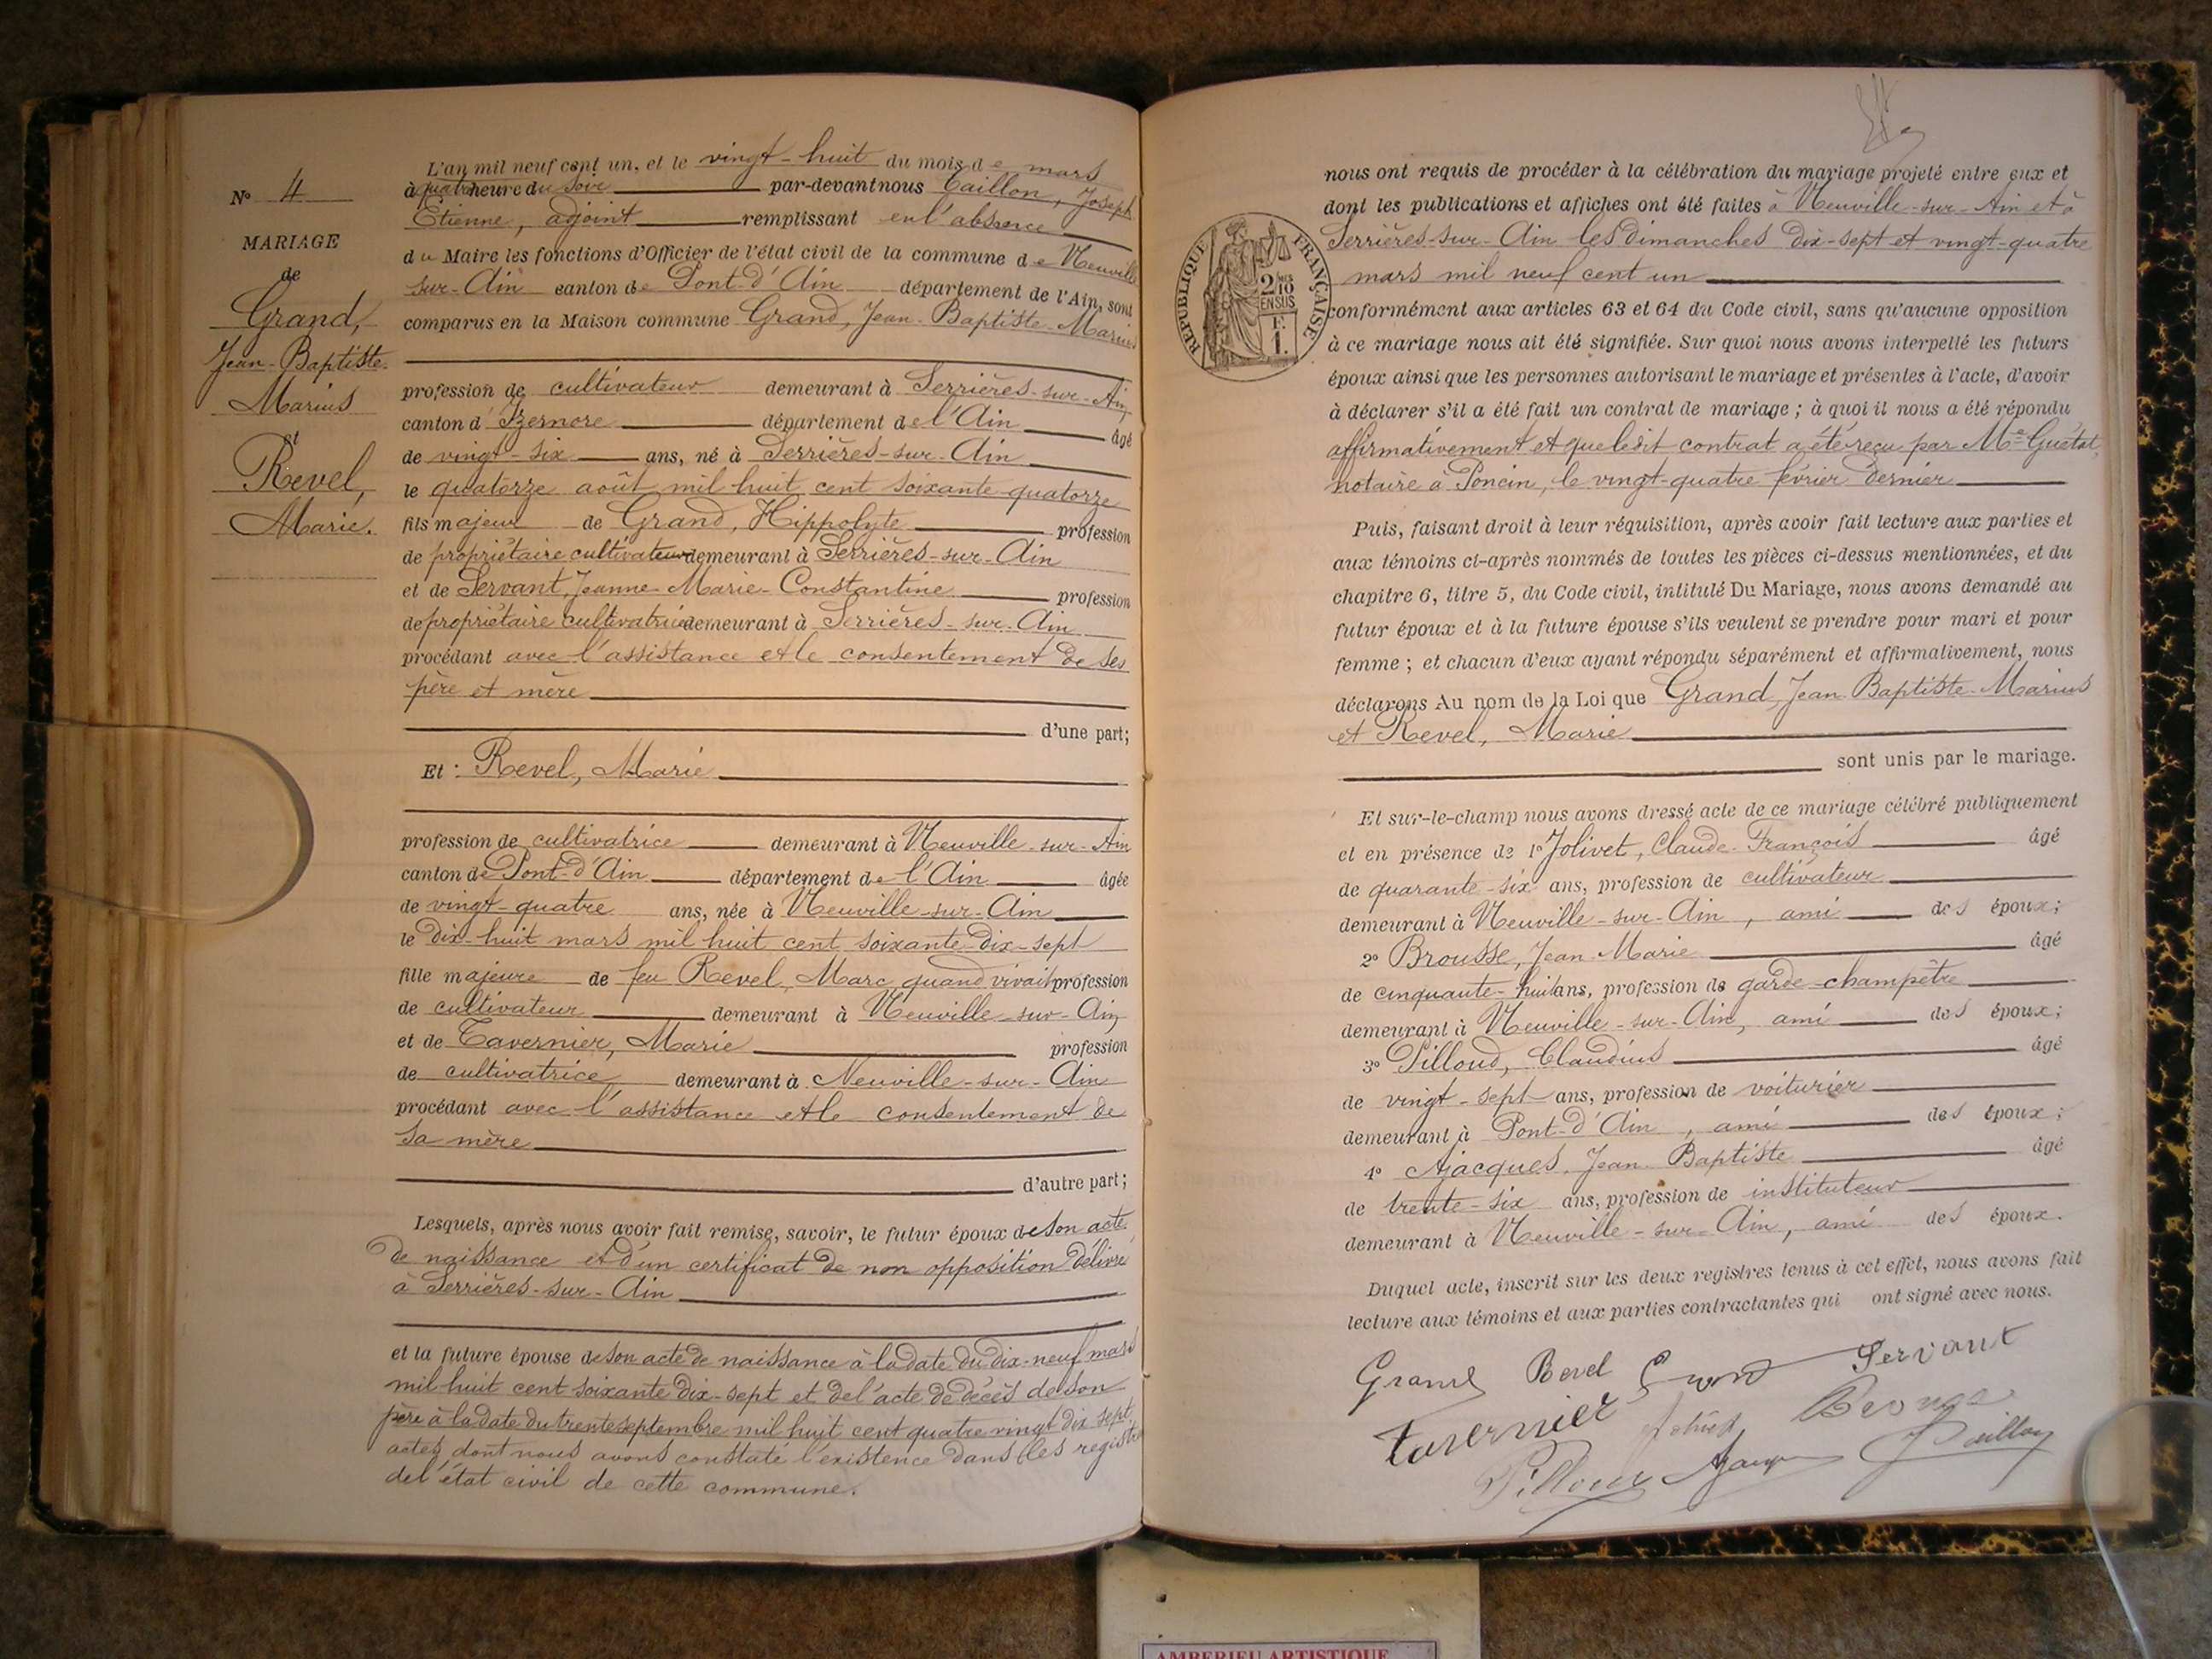 N° 4
MARIAGE
de
Grand,
Jean-Baptiste-
Marius
et
Revel,
Marie.
L'an mil neuf cent un, et le vingt-huit du mois de mars
à quatre heure du soir par-devant nous Taillon, Joseph
Etienne, adjoint remplissant en l'absence
du Maire les fonctions d'Officier de l'état civil de la commune de Neuville
sur-Ain canton de Pont-d'Ain département de l'Ain, sont
comparus en la Maison commune Grand, Jean-Baptiste-Marius
profession de cultivateur demeurant à Serrières-sur-Ain,
canton d'Izernore département de l'Ain âgé
de vingt-six ans, né à Serrières-sur-Ain
le quatorze août mil huit cent soixante-quatorze
fils majeur de Grand, Hippolyte profession
de propriétaire cultivateur demeurant à Serrières-sur-Ain
et de Servant, Jeanne-Marie-Constantine profession
de propriétaire cultivatrice demeurant à Serrières-sur-Ain
procédant avec l'assistance et le consentement de ses
père et mère
d'une part;
Et : Revel, Marie
profession de cultivatrice demeurant à Neuville-sur-Ain
canton de Pont-d'Ain département de l'Ain âgée
de vingt-quatre ans, née à Neuville-sur-Ain
le dix-huit mars mil huit cent soixante-dix-sept
fille majeure de feu Revel, Marc quand vivait profession
de cultivateur demeurant à Neuville-sur-Ain,
et de Tavernier, Marie profession
de cultivatrice, demeurant à Neuville-sur-Ain
procédant avec l'assistance et le consentement de
sa mère
d'autre part;
Lesquels, après nous avoir fait remise, savoir, le futur époux de son acte
de naissance et d'un certificat de non opposition délivré
à Serrières-sur-Ain
et la future épouse de son acte de naissance à la date du dix-neuf mars
mil huit cent soixante dix-sept et de l'acte de décès de son
père à la date du trente septembre mil huit cent quatre vingt dix sept,
actes dont nous avons constaté l'existence dans les registres
de l'état civil de cette commune.
nous ont requis de procéder à la célébration du mariage projeté entre eux et
dont les publications et affiches ont été faites à Neuville-sur-Ain et à
Serrières-sur-Ain les dimanches dix-sept et vingt-quatre
mars mil neuf cent un
RÉPUBLIQUE FRANÇAISE
2/10
EN SUS
F.
1.
conformément aux articles 63 et 64 du Code civil, sans qu'aucune opposition
à ce mariage nous ait été signifiée. Sur quoi nous avons interpellé les futurs
époux ainsi que les personnes autorisant le mariage et présentes à l'acte, d'avoir
à déclarer s'il a été fait un contrat de mariage ; à quoi il nous a été répondu
affirmativement et que ledit contrat a été reçu par Me Guétat,
notaire à Poncin, le vingt-quatre février dernier
Puis, faisant droit à leur réquisition, après avoir fait lecture aux parties et
aux témoins ci-après nommés de toutes les pièces ci-dessus mentionnées, et du
chapitre 6, titre 5, du Code civil, intitulé Du Mariage, nous avons demandé au
futur époux et à la future épouse s'ils veulent se prendre pour mari et pour
femme ; et chacun d'eux ayant répondu séparément et affirmativement, nous
déclarons Au nom de la Loi que Grand, Jean-Baptiste-Marius
et Revel, Marie
sont unis par le mariage.
Et sur-le-champ nous avons dressé acte de ce mariage célébré publiquement
et en présence de 1° Jolivet, Claude-François âgé
de quarante-six ans, profession de cultivateur
demeurant à Neuville-sur-Ain, ami des époux;
2° Brousse, Jean-Marie âgé
de cinquante-huit ans, profession de garde-champêtre
demeurant à Neuville-sur-Ain, ami des époux;
3° Pilloud, Claudius âgé
de vingt-sept ans, profession de voiturier
demeurant à Pont-d'Ain, ami des époux;
4° Ajacques, Jean-Baptiste âgé
de trente-six ans, profession de instituteur
demeurant à Neuville-sur-Ain, ami des époux.
Duquel acte, inscrit sur les deux registres tenus à cet effet, nous avons fait
lecture aux témoins et aux parties contractantes qui ont signé avec nous.
Grand Revel Servant
Tavernier
Pilloud Taillon
AMBERIEU ARTISTIQUE